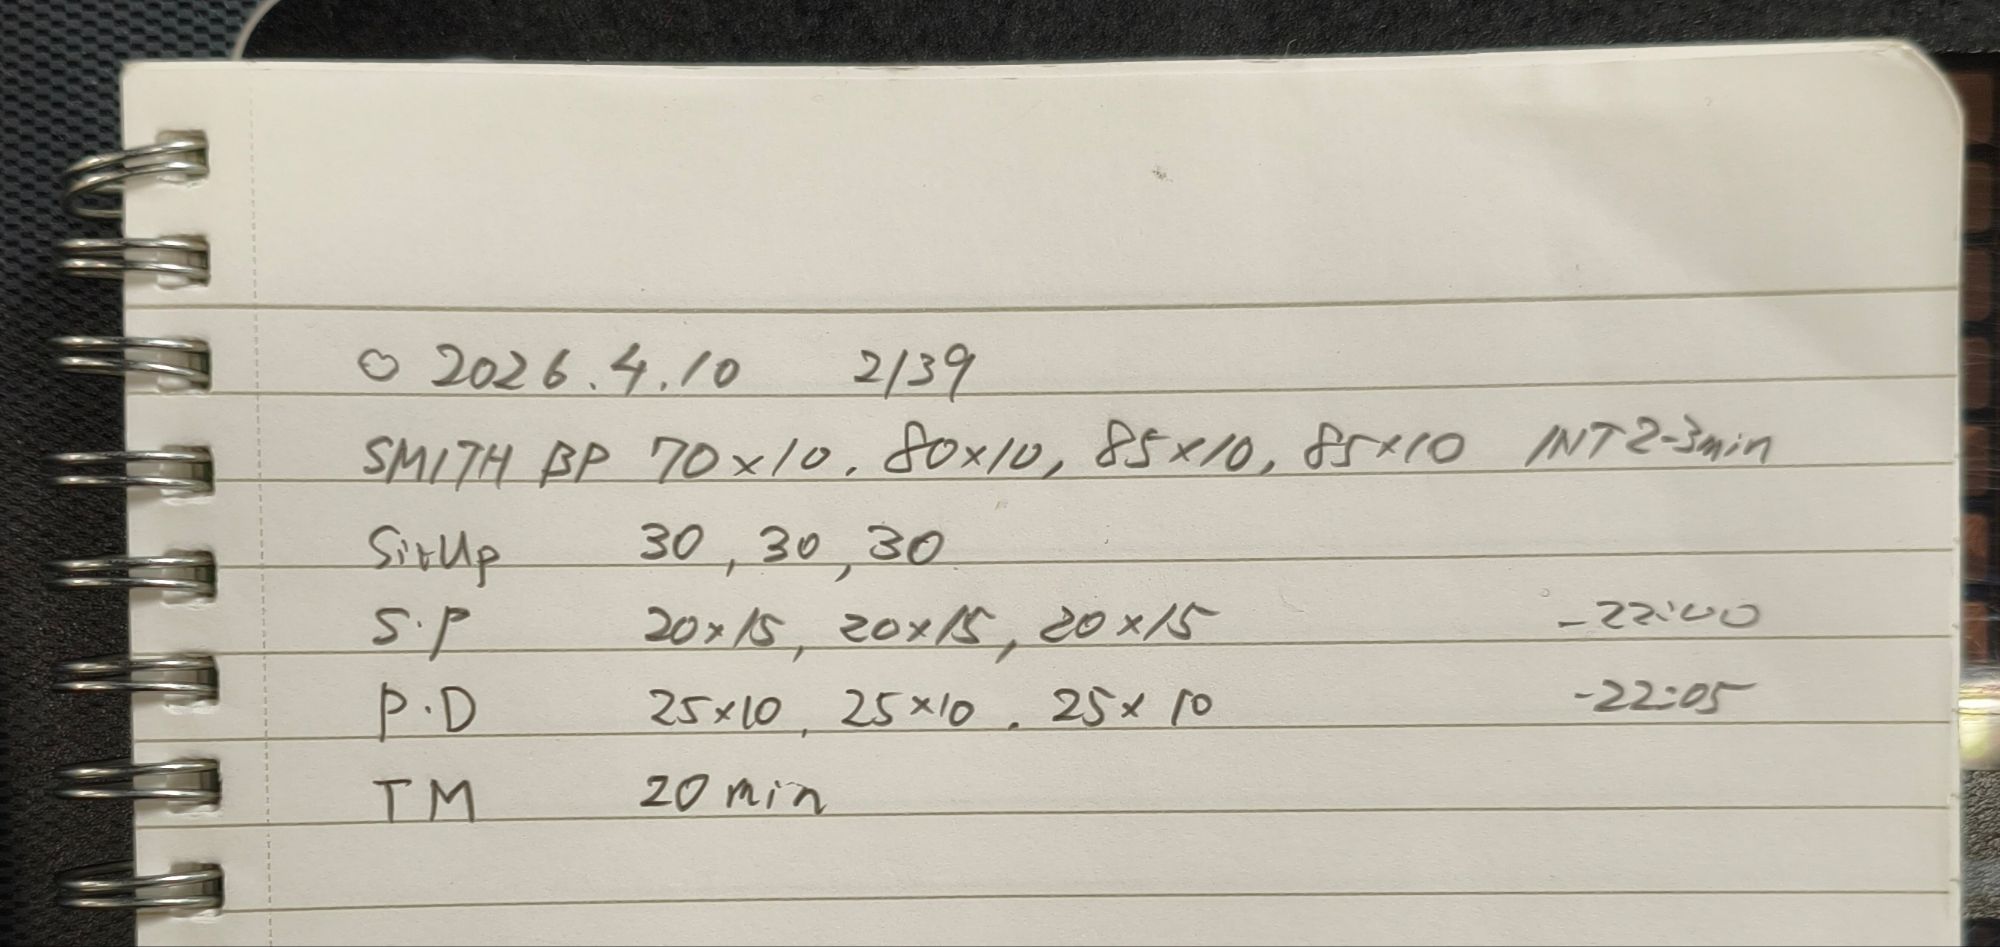 ○ 2026.4.10 2139
SMITH BP 70×10, 80×10, 85×10, 85×10 INT 2-3min
SitUp 30, 30, 30
S.P 20×15, 20×15, 20×15 -22:00
P.D 25×10, 25×10, 25×10 -22:05
TM 20 min